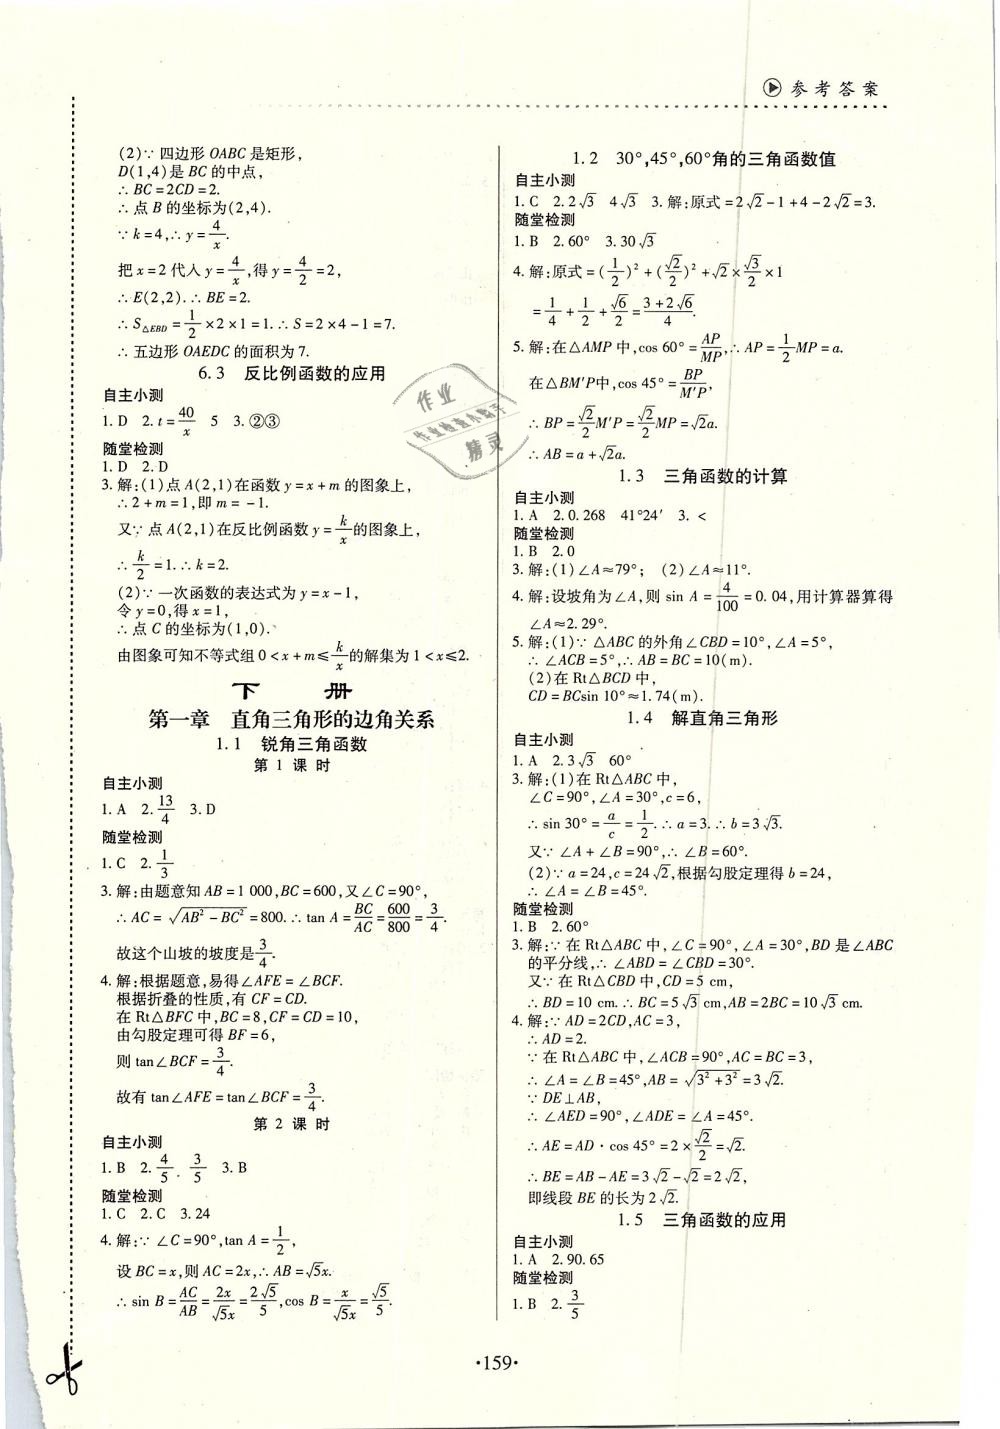 参考答案
(2)∵ 四边形 OABC 是矩形,
D(1,4)是 BC 的中点,
∴ BC=2CD=2.
∴ 点 B 的坐标为(2,4).
∵ k=4,∴ y=4/x.
把 x=2 代入 y=4/x,得 y=4/2=2,
∴ E(2,2). ∴ BE=2.
∴ S△EBD=1/2×2×1=1. ∴ S=2×4-1=7.
∴ 五边形 OAEDC 的面积为7.
6.3 反比例函数的应用
自主小测
1. D 2. t=40/x 5 3. ②③
随堂检测
1. D 2. D
3. 解:(1)点 A(2,1)在函数 y=x+m 的图象上,
∴ 2+m=1,即 m=-1.
又∵ 点 A(2,1)在反比例函数 y=k/x的图象上,
∴ k/2=1. ∴ k=2.
(2)∵ 一次函数的表达式为 y=x-1,
令 y=0,得 x=1,
∴ 点 C 的坐标为(1,0).
由图象可知不等式组 0<x+m≤k/x的解集为1<x≤2.
下 册
第一章 直角三角形的边角关系
1.1 锐角三角函数
第 1 课时
自主小测
1. A 2. 13/4 3. D
随堂检测
1. C 2. 1/3
3. 解:由题意知 AB=1 000,BC=600,又∠C=90°,
∴ AC=√(AB²-BC²)=800. ∴ tan A=BC/AC=600/800=3/4.
故这个山坡的坡度是3/4.
4. 解:根据题意,易得∠AFE=∠BCF.
根据折叠的性质,有 CF=CD.
在 Rt△BFC 中,BC=8,CF=CD=10,
由勾股定理可得 BF=6,
则 tan∠BCF=3/4.
故有 tan∠AFE=tan∠BCF=3/4.
第 2 课时
自主小测
1. B 2. 4/5. 3/5 3. B
随堂检测
1. C 2. C 3. 24
4. 解:∵ ∠C=90°,tan A=1/2,
设 BC=x,则 AC=2x,∴ AB=√5x.
∴ sin B=AC/AB=2x/√5x=2√5/5,cos B=x/√5x=√5/5.
1.2 30°,45°,60°角的三角函数值
自主小测
1. C 2. 2√3 4√3 3. 解:原式=2√2-1+4-2√2=3.
随堂检测
1. B 2. 60° 3. 30√3
4. 解:原式=(1/2)²+(√2/2)²+√2×√3/2×1
=1/4+1/2+√6/2=3+2√6/4.
5. 解:在△AMP 中,cos 60°=AP/MP,∴ AP=1/2MP=a.
在△BM′P中,cos 45°=BP/M′P,
∴ BP=√2/2M′P=√2/2MP=√2a.
∴ AB=a+√2a.
1.3 三角函数的计算
自主小测
1. A 2. 0.268 41°24′ 3. <
随堂检测
1. B 2. 0
3. 解:(1)∠A≈79°; (2)∠A≈11°.
4. 解:设坡角为∠A,则 sin A=4/100=0.04,用计算器算得
∠A≈2.29°.
5. 解:(1)∵ △ABC 的外角∠CBD=10°,∠A=5°,
∴ ∠ACB=5°,∴ AB=BC=10(m).
(2)在 Rt△BCD 中,
CD=BCsin 10°≈1.74(m).
1.4 解直角三角形
自主小测
1. A 2. 3√3 60°
3. 解:(1)在 Rt△ABC 中,
∠C=90°,∠A=30°,c=6,
∴ sin 30°=a/c=1/2. ∴ a=3. ∴ b=3√3.
又∵ ∠A+∠B=90°,∴ ∠B=60°.
(2)∵ a=24,c=24√2,根据勾股定理得 b=24,
∴ ∠A=∠B=45°.
随堂检测
1. B 2. 60°
3. 解:∵ 在 Rt△ABC 中,∠C=90°,∠A=30°,BD 是∠ABC
的平分线,∴ ∠ABD=∠CBD=30°.
又∵ 在 Rt△CBD 中,CD=5 cm,
∴ BD=10 cm. ∴ BC=5√3 cm,AB=2BC=10√3 cm.
4. 解:∵ AD=2CD,AC=3,
∴ AD=2.
∵ 在 Rt△ABC 中,∠ACB=90°,AC=BC=3,
∴ ∠A=∠B=45°,AB=√(3²+3²)=3√2.
∵ DE⊥AB,
∴ ∠AED=90°,∠ADE=∠A=45°.
∴ AE=AD·cos 45°=2×√2/2=√2.
∴ BE=AB-AE=3√2-√2=2√2,
即线段 BE 的长为2√2.
1.5 三角函数的应用
自主小测
1. A 2. 90.65
随堂检测
1. B 2. 3/5
作业
作业检查小助手
精灵
·159·